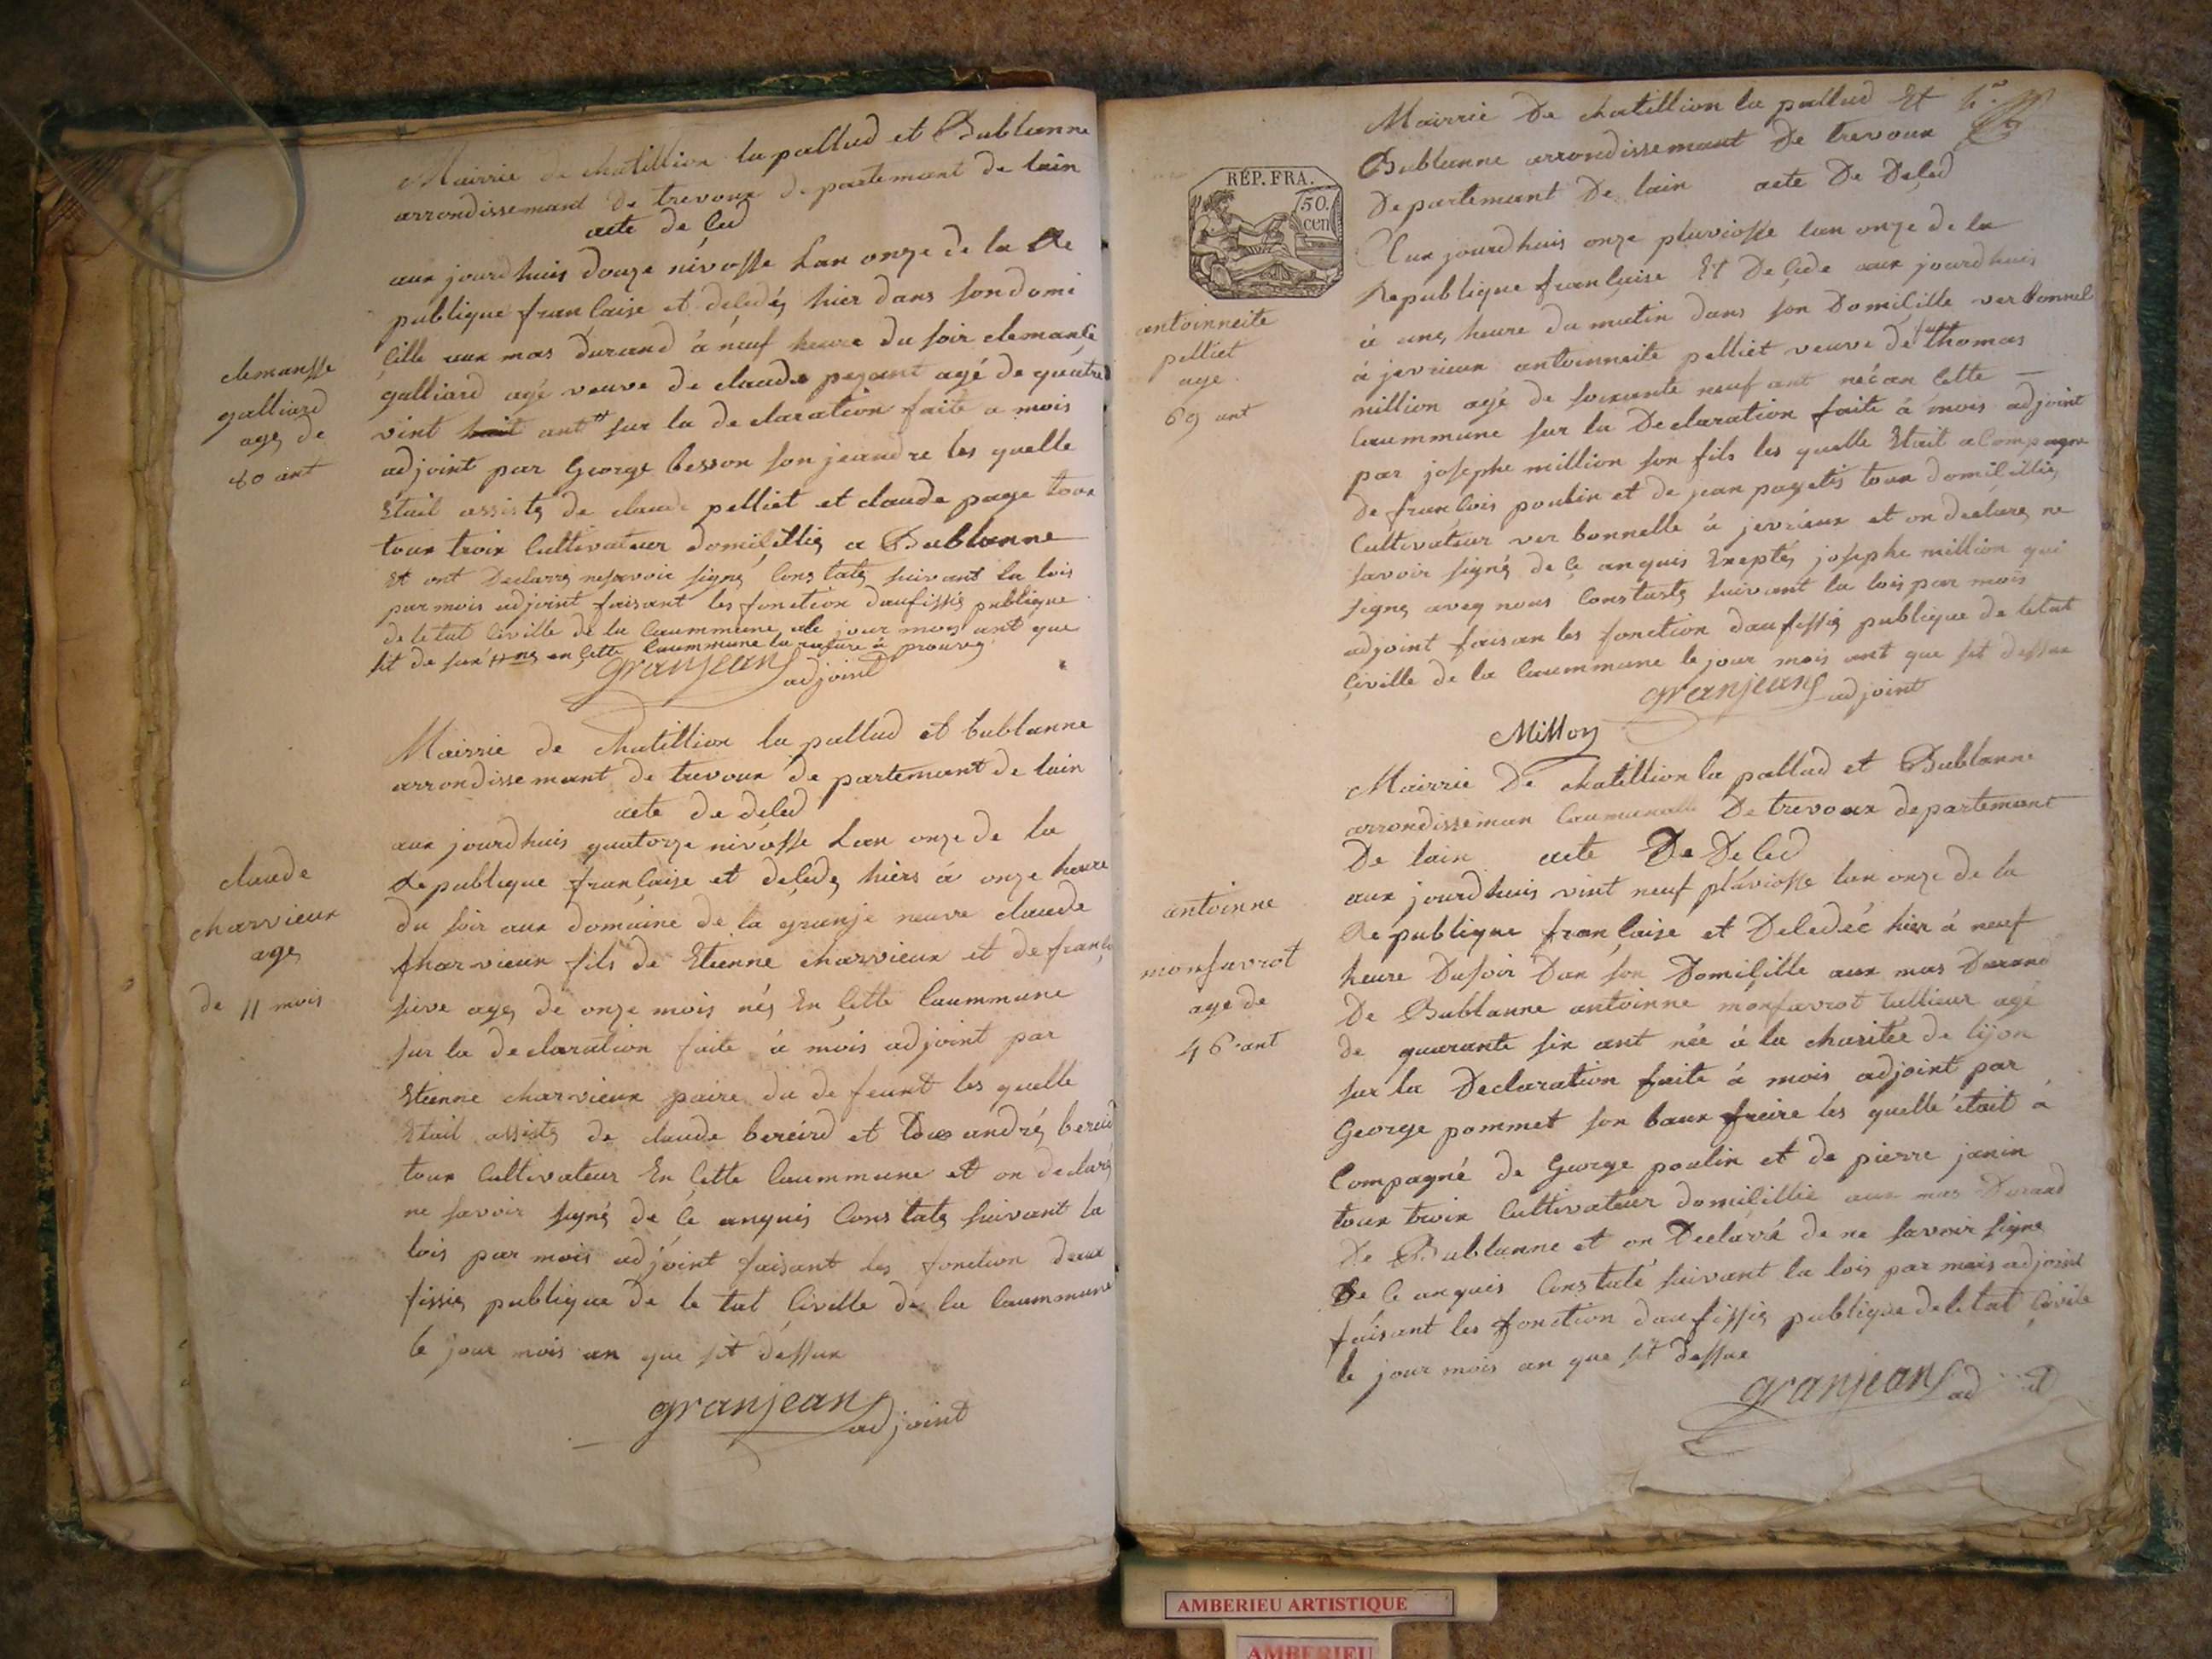 Mairrie de chatillion la pallud et Bublanne
arrondissemant De trevoux departemant de lain
acte de çed
aux jourdhuis douze nivosse Lan onze de la Re
publique franlaise et decedéz hier dans son domi
cille aux mas Durand à neuf heure du soir clemance
galliard agé veuve de claude pezant agé de quatre
vint ant # sur la declaration faite a mois
adjoint par George besson son jeandre les quelle
Etait assistéz de claude pelliet et claude page tous
tour troix Cultivateur domicilliéz a Bublanne
Et ont Declarré nesavoir signéz Constatéz suivant la lois
par mois adjoint faisant les fonction daufissié publique
de letat Civille de la Caummune le jour moy ant que
sit de sur # néz en cette Caummune la rature à prouvéz
granjean adjoint
clemansse
galliard
agéz de
80 ant
Mairrie de chatillion la pallud et bublanne
arrondissemant de trevoux de partemant de lain
acte de deced
aux jourdhuis quatorze nivosse Lan onze de la
Republique franlaise et decedéz hiers à onze heure
du soir aux domaine de la granje neuve claude
charvieux fils de Etienne charvieux et de franço
sive agéz de onze mois néz En cette Caummune
sur la declaration faite à mois adjoint par
Etienne charvieux paire du defeunt les quelle
Etait assistéz de claude bereird et andréz bereird
tour Cultivateur En cette Caummune et on declaré
ne savoir signéz de ce anquis Constatéz suivant la
lois par mois adjoint faisant les fonction daux
fissiéz publique de le tat Civille de la Caummune
le jour mois an que sit dessux
granjean adjoint
claude
charvieux
agéz
de 11 mois
Mairrie De chatillion la pallud Et
Bublanne arrondissemant De trevoux
Departemant De lain acte De Deced
RÉP. FRA.
50.
cen
Aux jourdhuis onze pluviosse lan onze de la
Republique franlaise Et Decede aux jourdhuis
à une heure du mutin dans son Domicille ver bonnel
à jevrieux antoinneite pelliet veuve de fut thomas
million agé de soixante neuf ant néé an Cette
Caummune sur la Declaration faite à mois adjoint
par josephe million son fils les quelle Etait acompagne
De franlois poulin et de jean pagetis tour domicilliéz
Cultivateur ver bonnelle à jevrieux et on declaréz ne
savoir signéz de ce anquis Exeptéz josephe million qui
signe aveq nous Constatéz suivant la lois par mois
adjoint faisan les fonction daufissiéz publique de letat
Civille de la Caummune le jour mois ant que sit dessue
granjean adjoint
Millon
antoinneite
pelliet
age
69 ant
Mairrie De chatillion la pallud et Bublanne
arrondisseman Caumunalle De trevoux departemant
De lain acte De Deced
aux jourdhuis vint neuf pluviosse lan onze de la
Republique franlaise et Decedéé hier à neuf
heure Dusoir Dan son Domicille aux mas Durand
De Bublanne antoinne monfavrot tallieur agé
de quarante six ant néé à la charitée de lijon
sur la Declaration faite à mois adjoint par
George pommet son baux freire les quelle était à
Compagné de George poulin et de pierre janin
tour troix Cultivateur domicillié aux mas Durand
De Bublanne et on Declarré de ne savoir signe
De ce anquis Constaté suivant la lois par mois adjoint
faisant les fonction daufissié publique deletat Civile
le jour mois an que sit dessue
granjean
antoinne
monfavrot
age de
46 ant
AMBERIEU ARTISTIQUE
AMBERIEU